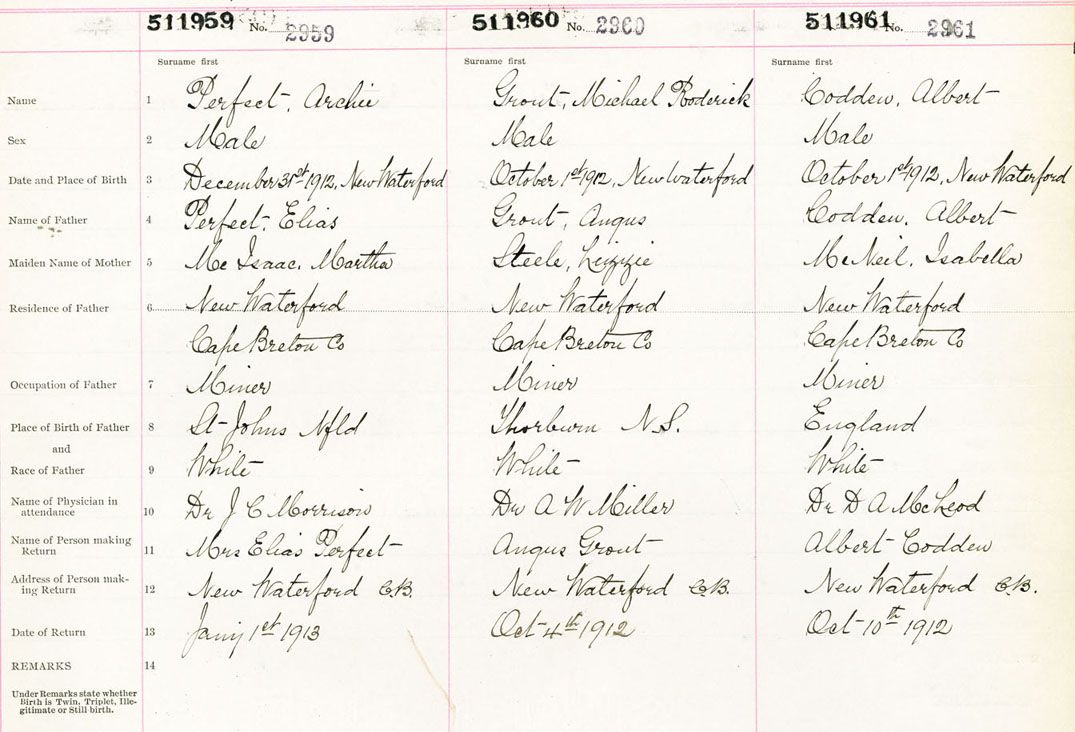 511959 No. 2959 511960 No. 2960 511961 No. 2961
Surname first Surname first Surname first
Name 1 Perfect, Archie Grout, Michael Roderick Codden, Albert
Sex 2 Male Male Male
Date and Place of Birth 3 December 31st 1912, New Waterford October 1st 1912, New Waterford October 1st 1912, New Waterford
Name of Father 4 Perfect, Elias Grout, Angus Codden, Albert
Maiden Name of Mother 5 Mc Isaac, Martha Steele, Lizzie McNeil, Isabella
Residence of Father 6 New Waterford New Waterford New Waterford
Cape Breton Co Cape Breton Co Cape Breton Co
Occupation of Father 7 Miner Miner Miner
Place of Birth of Father 8 St Johns Nfld Thorburn N.S. England
and
Race of Father 9 White White White
Name of Physician in
attendance 10 Dr J C Morrison Dr A W Miller Dr D A McLeod
Name of Person making
Return 11 Mrs Elias Perfect Angus Grout Albert Codden
Address of Person mak-
ing Return 12 New Waterford C.B. New Waterford C.B. New Waterford C.B.
Date of Return 13 Jany 1st 1913 Oct 4th 1912 Oct 10th 1912
REMARKS 14
Under Remarks state whether
Birth is Twin, Triplet, Ille-
gitimate or Still birth.